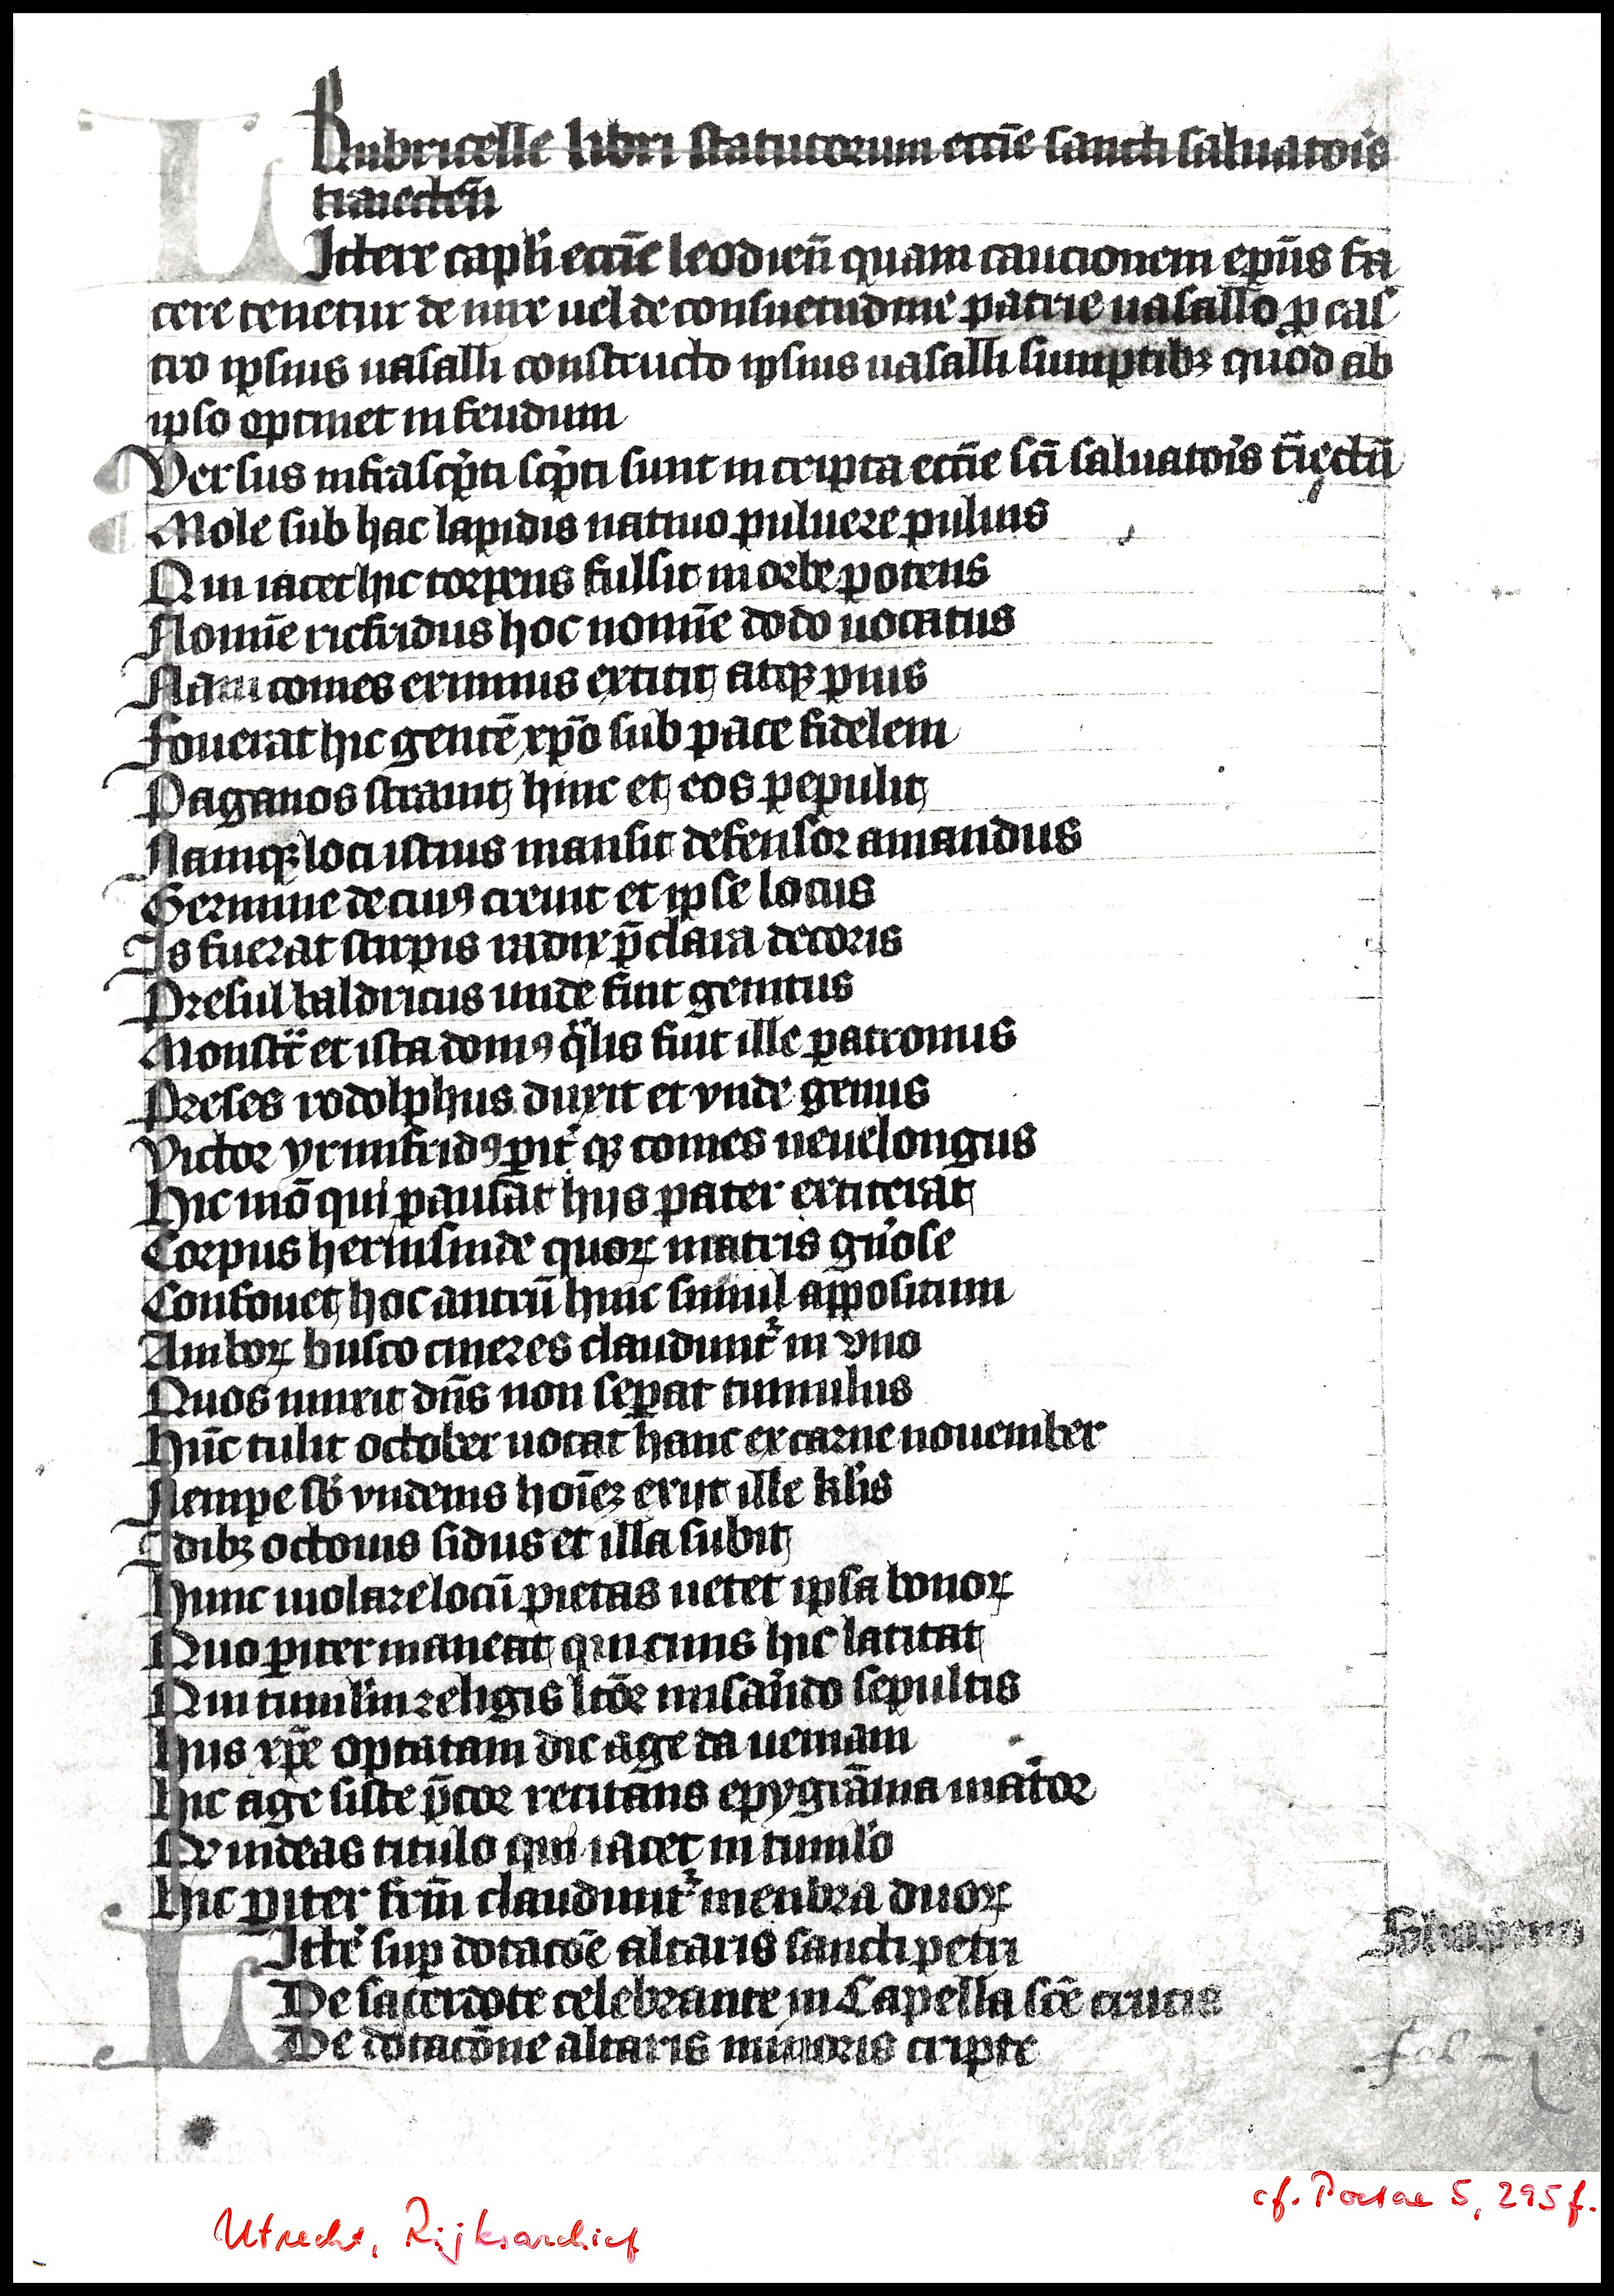 Rubricelle libri statutorum eccīe sancti saluatoīs
traiecteñ
Littere capli eccīe leodieñ quam caucionem ep̄us fa
cere tenetur de iure uel de consuetudine patrie uasallo p cas
tro ipsius uasalli constructo ipsius uasalli sumptibꝫ quod ab
ipso optinet in feudum
Versus infrascpti scpti sunt in cripta eccīe sc̄i saluatoīs
Mole sub hac lapidis natiuo puluere puluis
Qui iacet hic torpens fulsit in orbe potens
Nomīe ricfridus hoc nomīe dodo uocatus
Nam comes eximius extitit atqꝫ pius
Fouerat hic gentē xp̄o sub pace fidelem
Paganos strauit hinc et eos pepulit
Namqꝫ loci istius mansit defensor amandus
Germine de cuiꝰ creuit et ipse locus
Is fuerat stirpis radix p̄clara decoris
Presul baldricus unde fuit genitus
Monstͣt et ista domꝰ qͣlis fuit ille patronus
Preses rodolphus duxit et vnde genus
Victor yrimfridꝰ pitͥ qꝫ comes neuelongus
Hic mō qui pausat hijs pater extiterat
Corpus herinsinde quoꝝ matris gn̄ose
Confouet hoc antrū hinc simul appositum
Amboꝝ busto cineres claudunt᷑ in vno
Quos iunxit dn̄s non sepat tumulus
Hūc tulit october uocat hanc ex carne nouember
Nempe sb vndenis hoīeꝫ exijt ille kl̄is
Idibꝫ octonis sidus et illa subit
Hunc uiolare locū pietas uetet ipsa bonoꝝ
Quo piter maneat qui cinis hic latitat
Qui tumlūm religis lcōr misando sepultis
Hijs xp̄e optatam dic age da ueniam
Hic age siste p̄cor recitans epygrāma uiator
Vt uideas titulo qui iacet in tumlo
Hic piter frm̄ claudunt᷑ menbra duoꝝ
Littē sup dotacōe altaris sancti petri
De sacerdote celebrante in Capella sc̄e crucis
De dotacōne altaris minoris cripte
fol - j
cf. Poetae 5, 295 f.
Utrecht, Rijksarchief